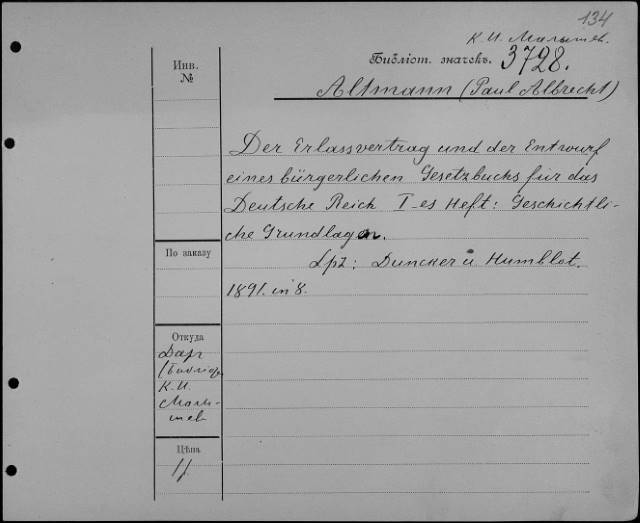 134
К. И. Малышев.
Инв.
№
Библіот. значекъ. 3728.
Altmann (Paul Albrecht)
Der Erlassvertrag und der Entwurf
eines bürgerlichen Gesetzbuchs für das
Deutsche Reich I-es Heft: Geschichtli-
che Grundlagen.
Lpz: Duncker u Humblot.
1891. in 8.
По заказу
Откуда
Даръ
К. И.
Малы-
шев
Цѣна